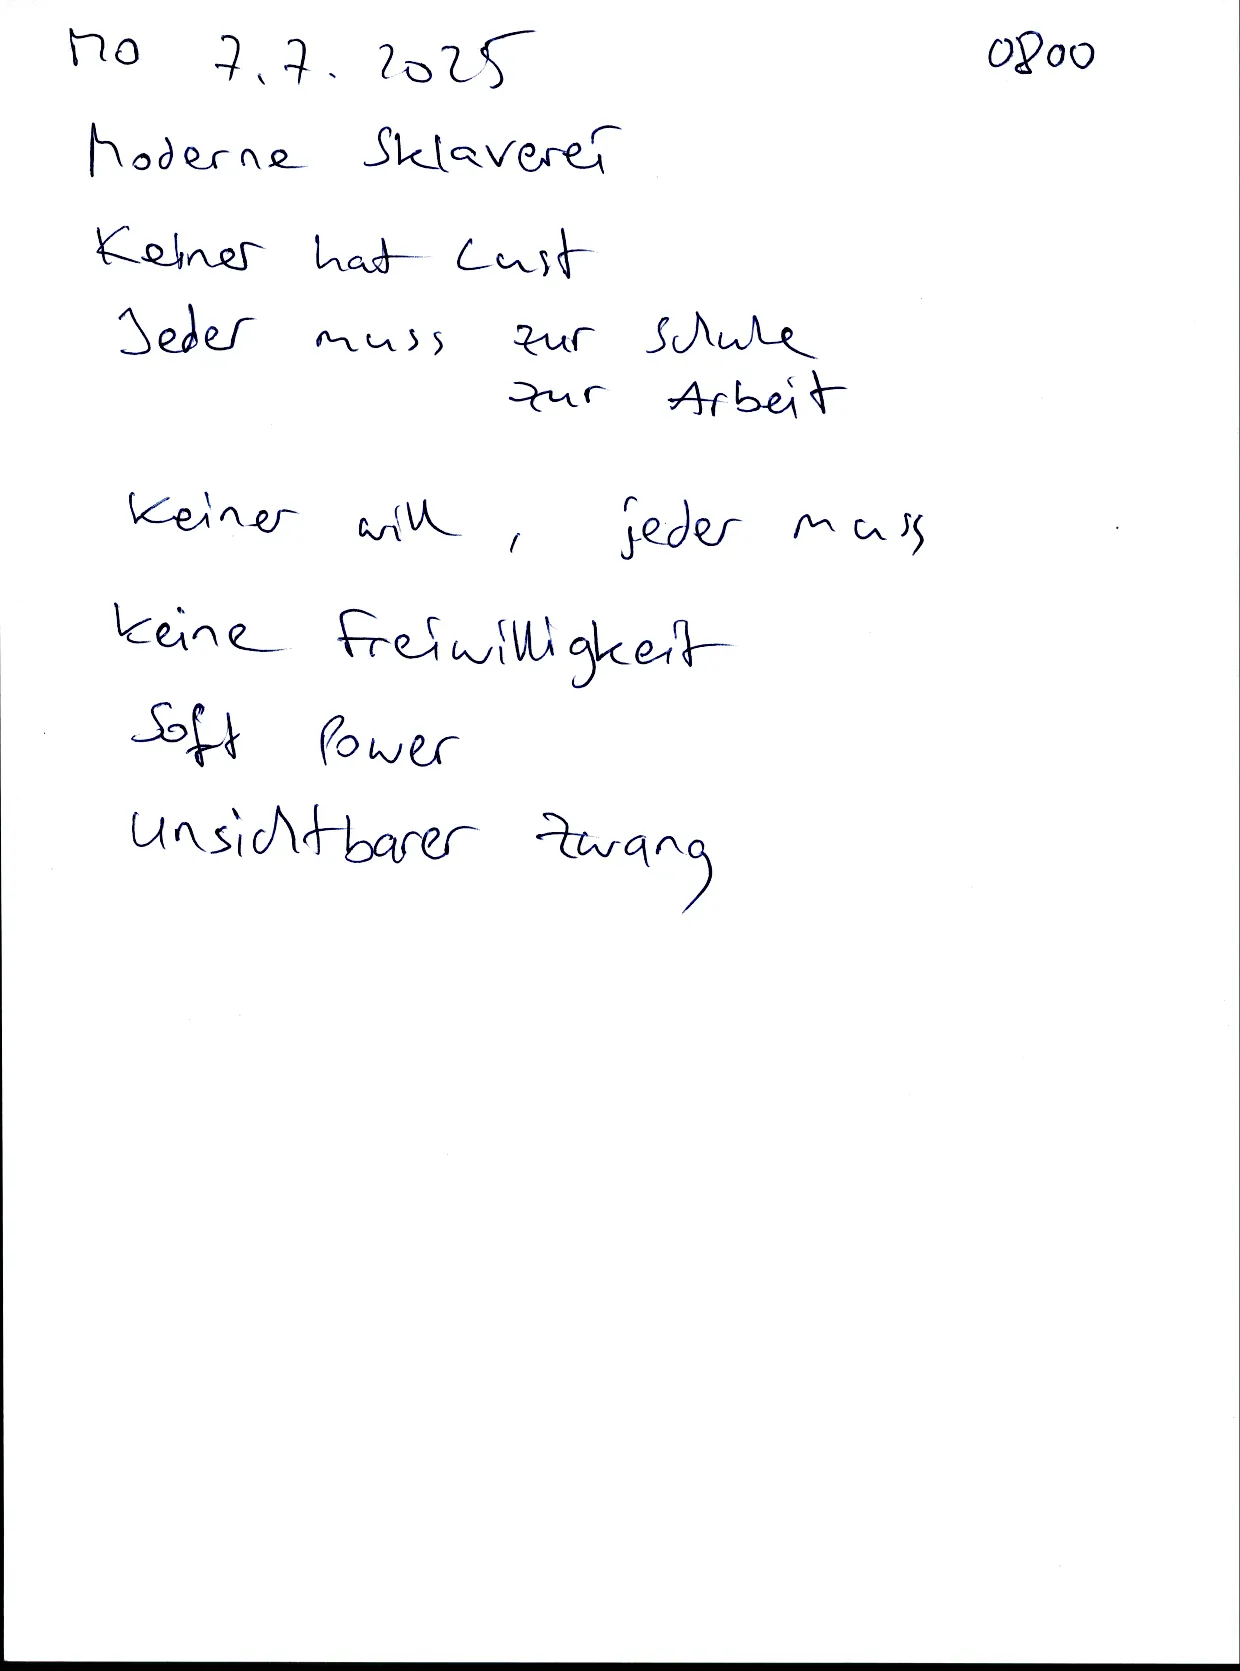 Mo 7.7.2025 0800
Moderne Sklaverei
Keiner hat Lust
Jeder muss zur Schule
zur Arbeit
Keiner will, jeder muss
keine Freiwilligkeit
Soft Power
Unsichtbarer Zwang